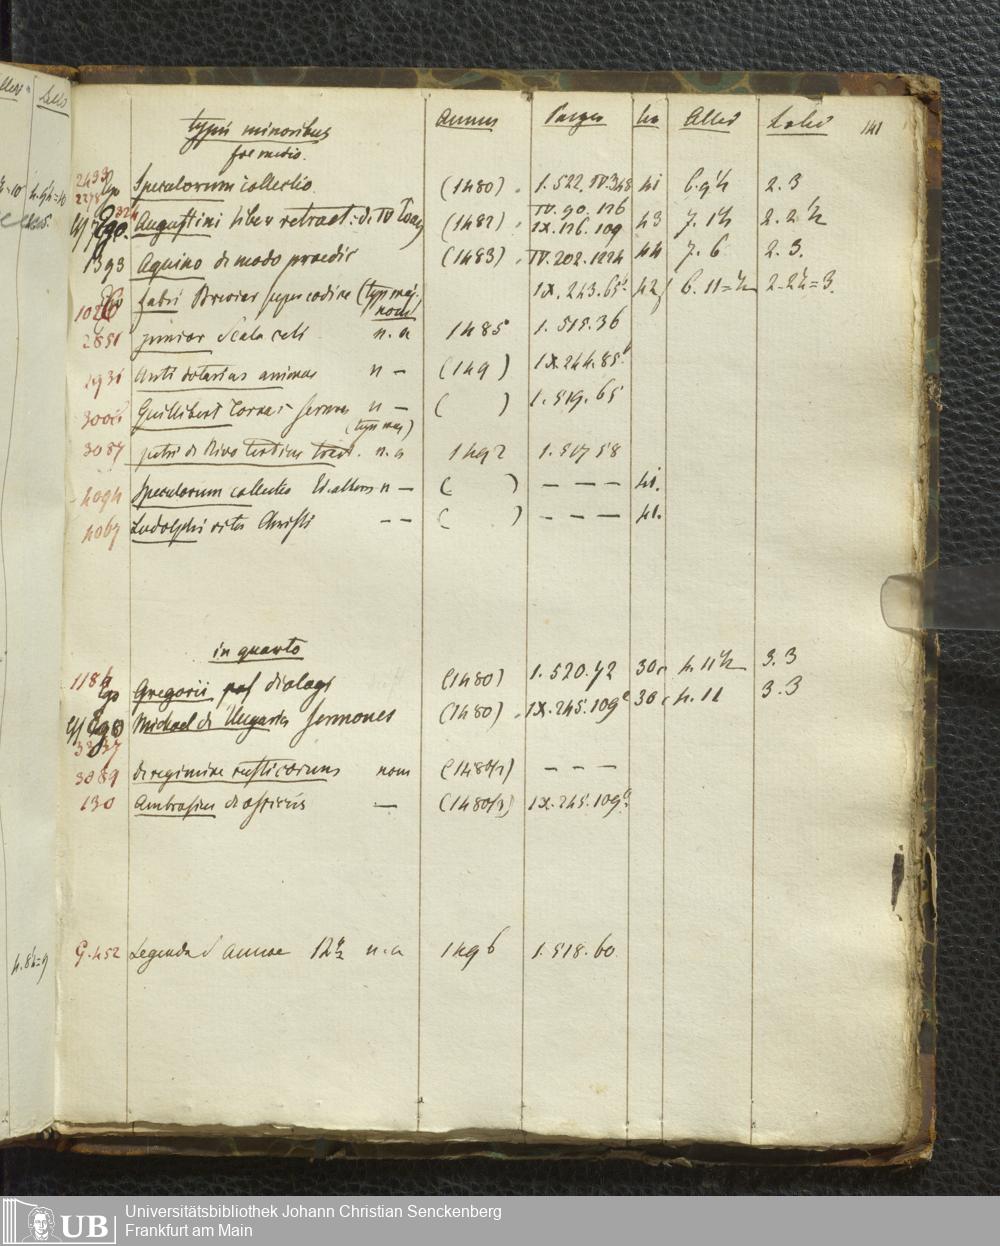 typis minoribus Annus Panzer lin Altit Latit 141
fol medio.
2433
2278 Speculorum collectio. (1480) 1.522.IV.348 41 6.9½ 2.3
324 Augustini liber retract. (1482) IV.90.126
IX.126.109 43 7.1½ 2.2½
1393 Aquino de modo praedic (1483) IV.202.1224 44 7.6 2.3.
fabri Breviar super codice (typi maj. IX.243.65 42 6.11=½ 2-2½=3.
nom
2851 junior Scala celi n.a 1485 1.515.36
2931 Antidotarius animae n — (149 ) IX.244.85
Guillibert Tornac Sermo n — ( ) 1.519.65
(typi maj)
3087 petri de Rivo tertius tract. n.a 1492 1.517 58
4094 Speculorum collectio Ed. altera n — ( ) — — — 41.
4067 Ludolphi vita Christi — — ( ) — — — 41.
in quarto
1184 Gregorii pap dialogi (1480) 1.520.72 30 4.11½ 3.3
Michael de Ungaria Sermones (1480) IX.245.109 30 4.11 3.3
3337
3889 de regimine rusticorum nom (1480/1) — — —
130 Ambrosius de officiis — (1480/3) IX.245.109
G.452 Legenda S Annae 12 n.a 1496 1.518.60
4.8½=9
UB Universitätsbibliothek Johann Christian Senckenberg
Frankfurt am Main